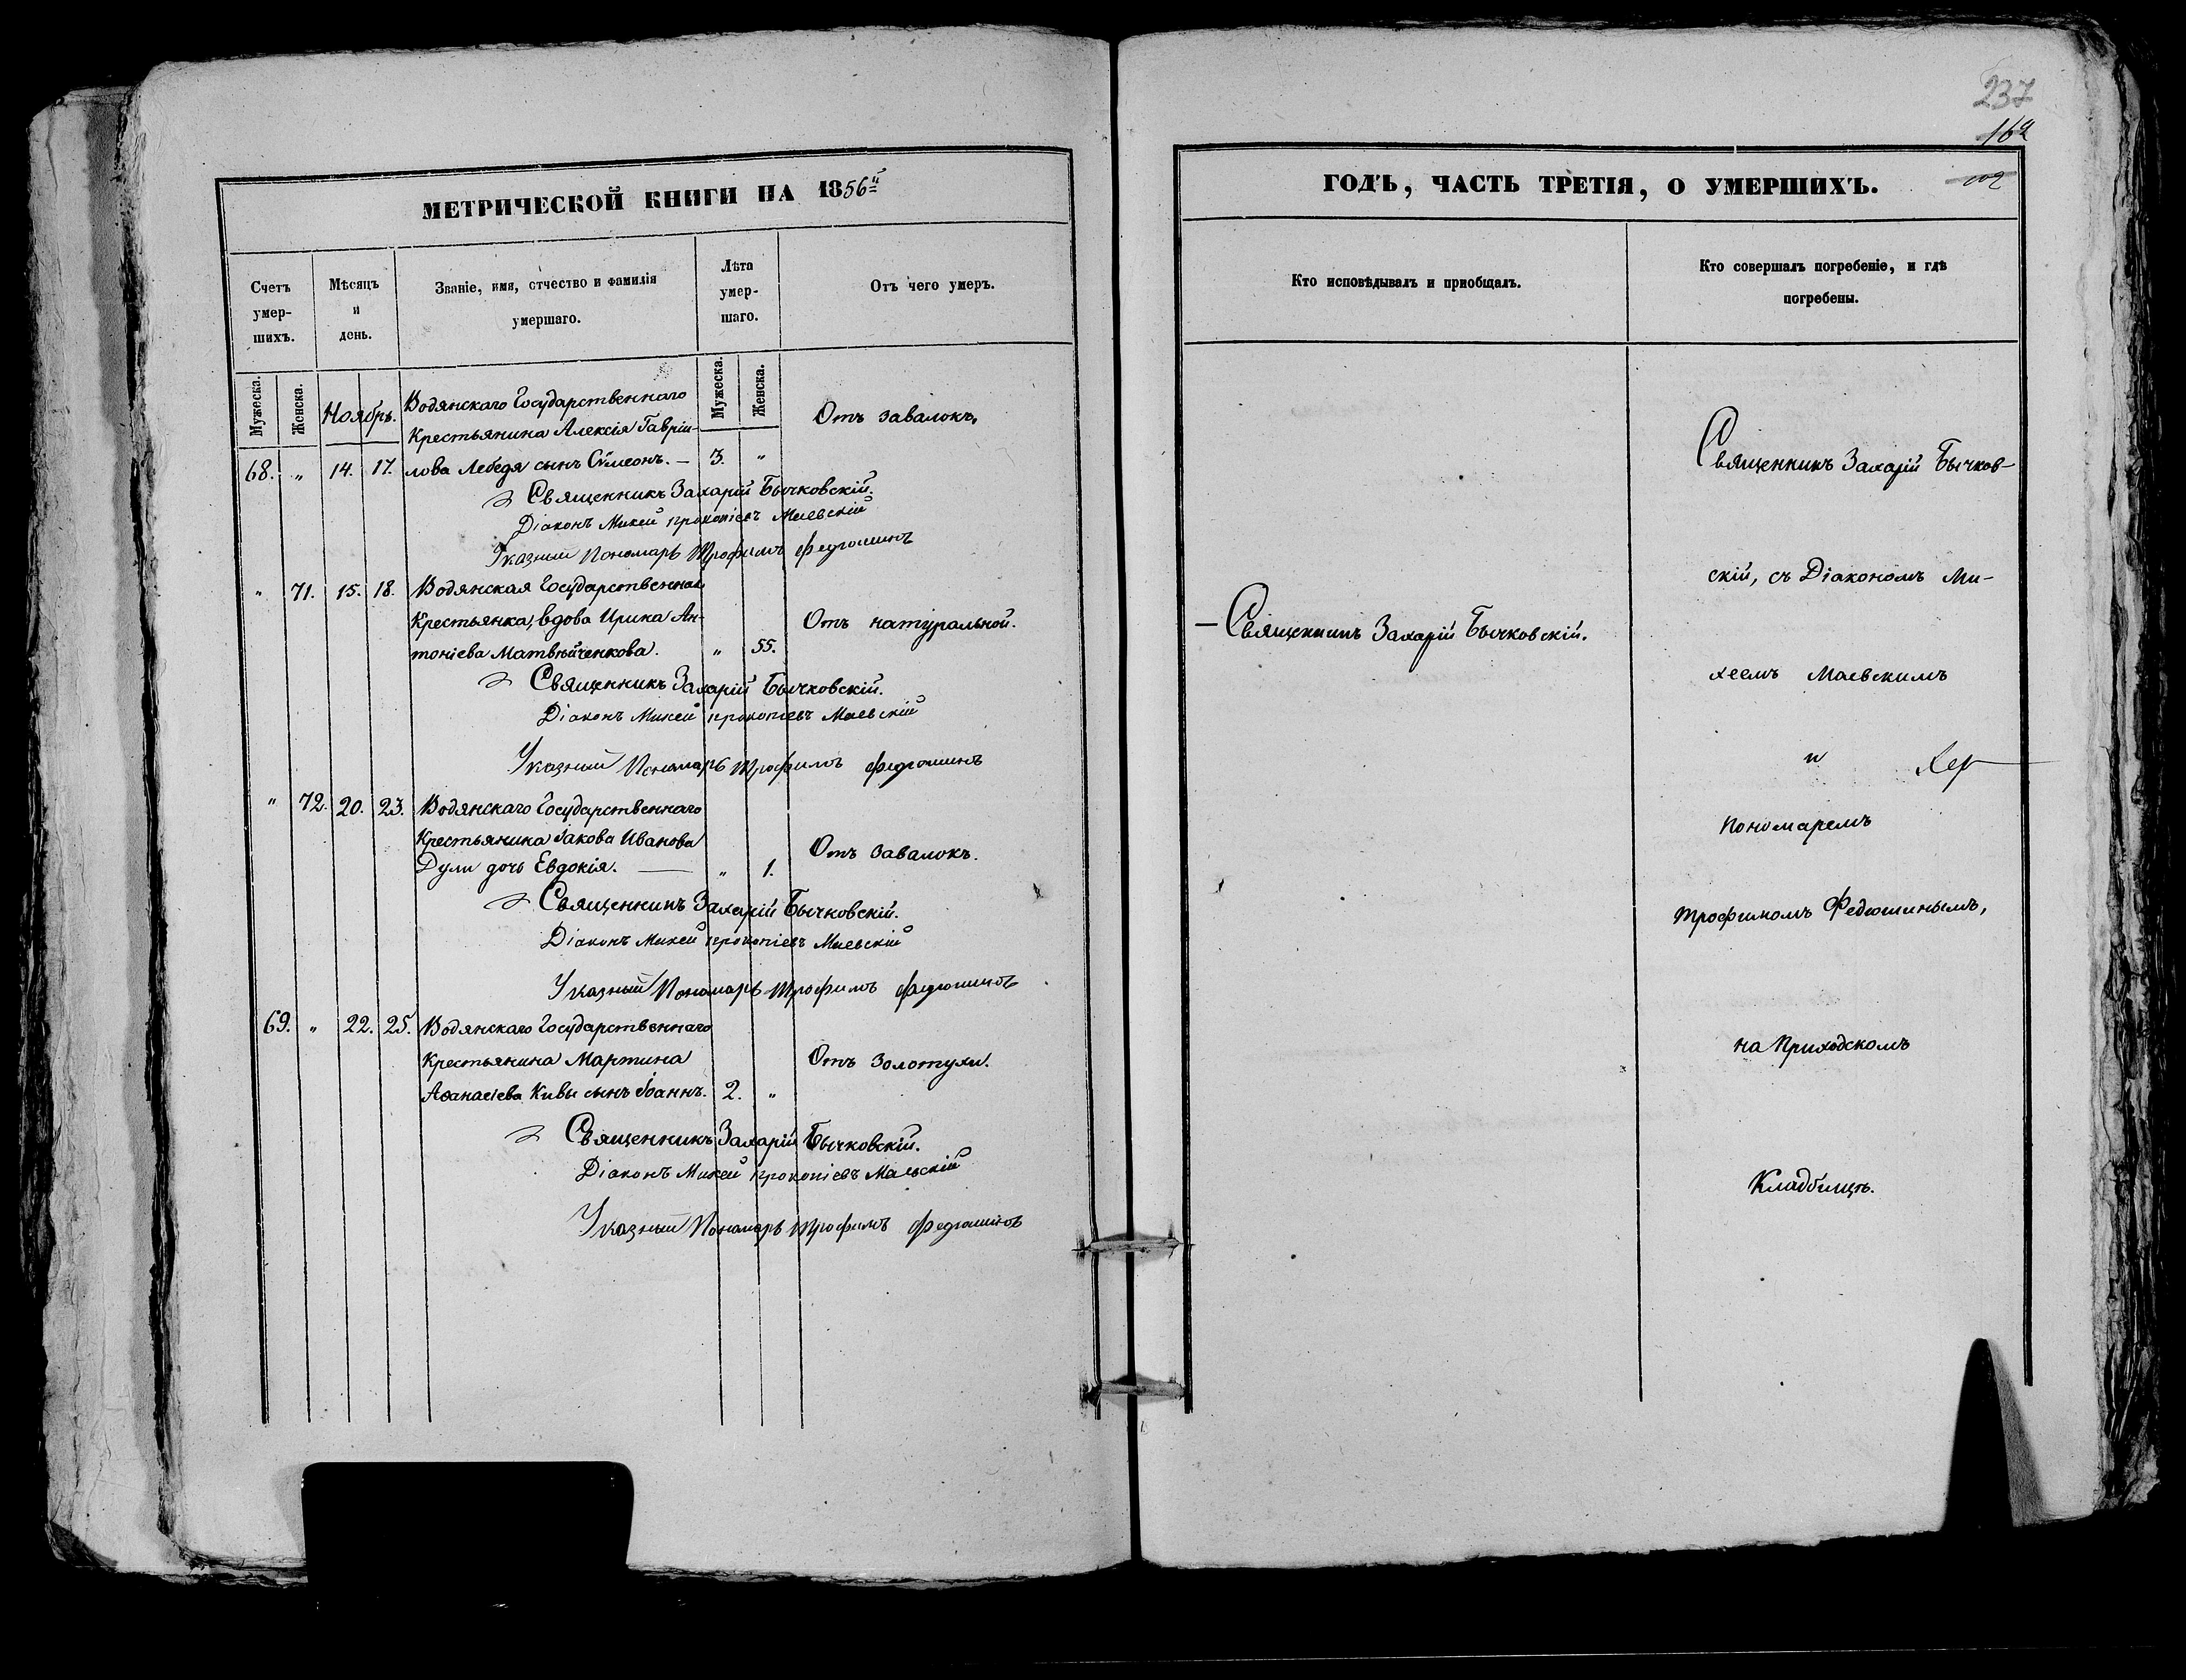 237
162
МЕТРИЧЕСКОЙ КНИГИ НА 1856й
Счетъ
умер-
шихъ.
Мѣсяцъ
и
день.
Званіе, имя, отчество и фамилія
умершаго.
Лѣта
умер-
шаго.
Отъ чего умеръ.
Мужеска.
Женска.
Ноябрь.
Мужеска.
Женска.
Водянскаго Государственнаго
Крестьянина Алексія Гавріи-
68. " 14. 17. лова Лебедя сынъ Сѵмеонъ. — 3. "
Отъ завалокъ.
Священникъ Захарій Бычковскій.
Діаконъ Михей Прокопіевъ Маевскій
Указный Пономарь Трофимъ Федюшинъ
" 71. 15. 18. Водянская Государственная
Крестьянка, вдова Ирина Ан-
тоніева Матвѣйченкова. " 55.
Отъ натуральной.
Священникъ Захарій Бычковскій.
Діаконъ Михей Прокопіевъ Маевскій
Указный Пономарь Трофимъ Федюшинъ
" 72. 20. 23. Водянскаго Государственнаго
Крестьянина Іакова Иванова
Дули дочь Евдокія. — " 1.
Отъ завалокъ.
Священникъ Захарій Бычковскій.
Діаконъ Михей Прокопіевъ Маевскій
Указный Пономарь Трофимъ Федюшинъ
69. " 22. 25. Водянскаго Государственнаго
Крестьянина Мартина
Аѳанасіева Кивы сынъ Іоаннъ. 2. "
Отъ золотухи.
Священникъ Захарій Бычковскій.
Діаконъ Михей Прокопіевъ Маевскій
Указный Пономарь Трофимъ Федюшинъ
ГОДЪ, ЧАСТЬ ТРЕТІЯ, О УМЕРШИХЪ.
Кто исповѣдывалъ и пріобщалъ.
Кто совершалъ погребеніе, и гдѣ
погребены.
— Священникъ Захарій Бычковскій.
Священникъ Захарій Бычков-
скій, съ Діакономъ Ми-
хеемъ Маевскимъ
и
Пономаремъ
Трофимомъ Федюшинымъ,
на Приходскомъ
Кладбищѣ.